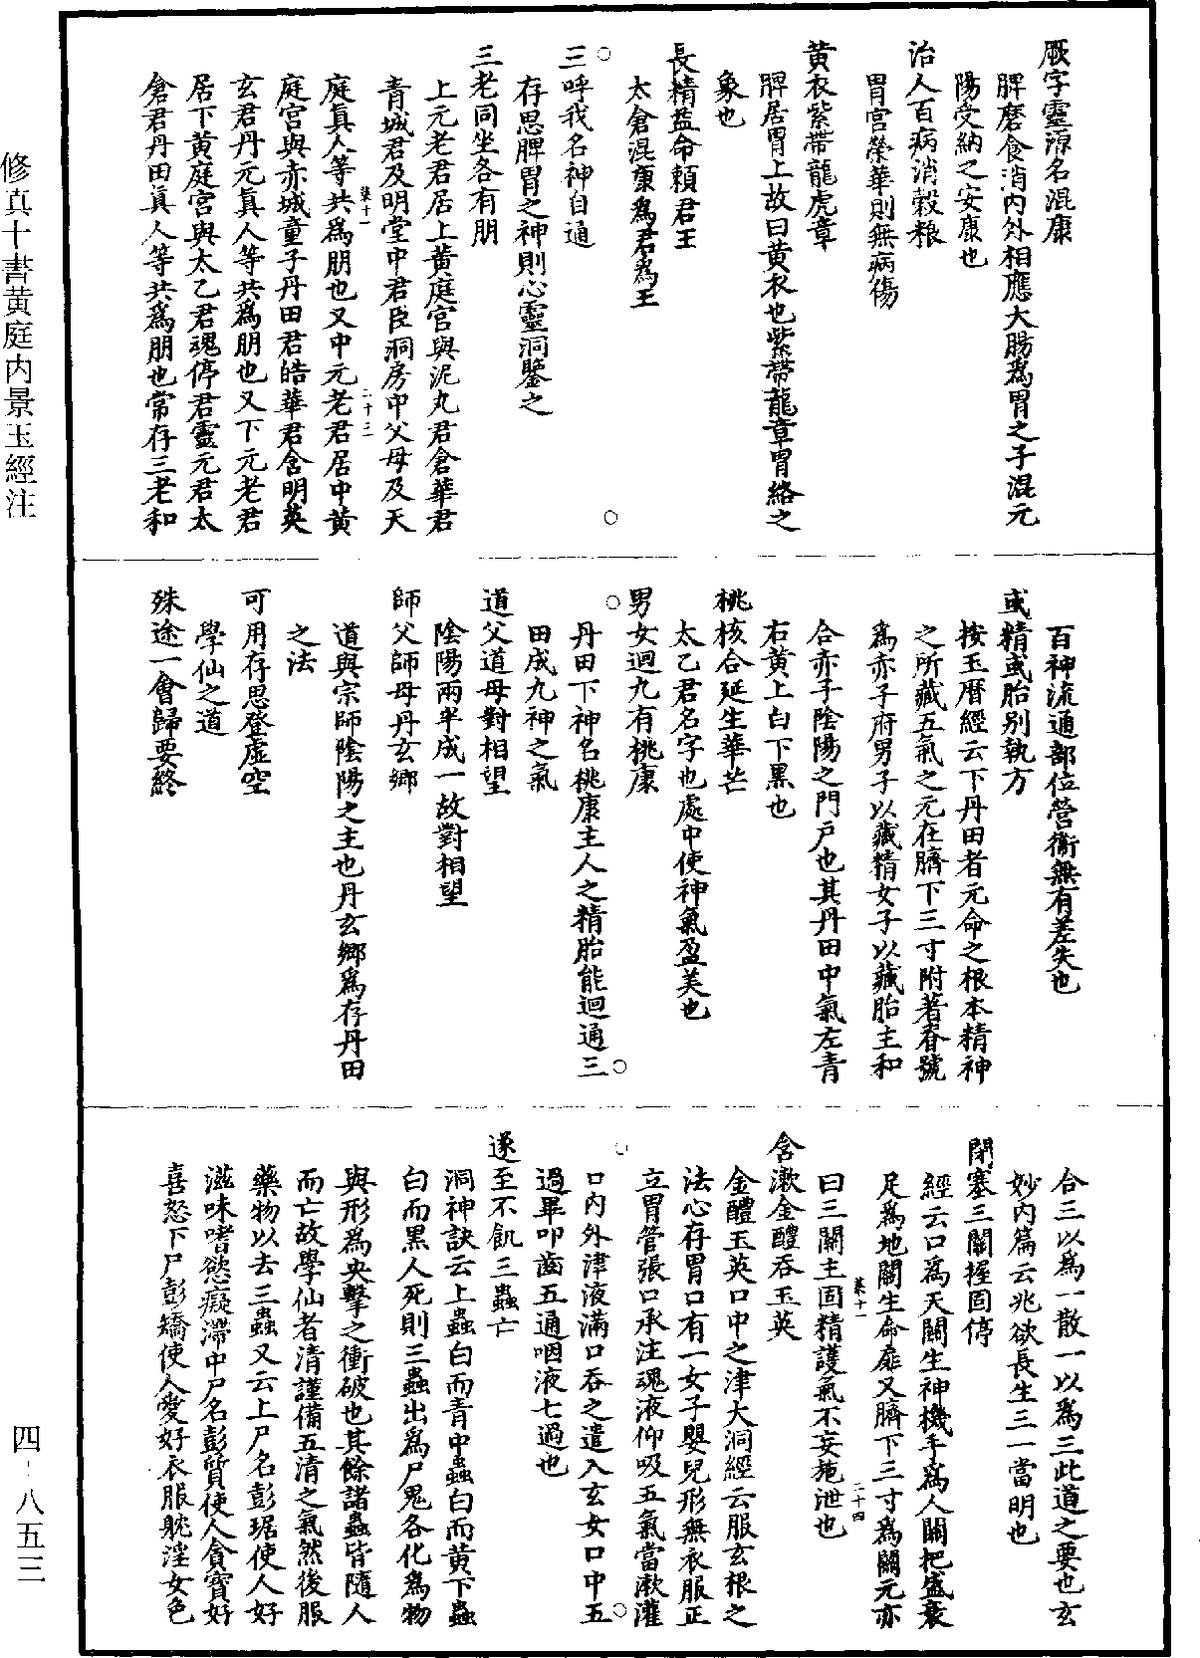 厥字靈源名混康
脾磨食消內外相應大腸為胃之子混元
陽受納之安康也
治人百病消穀粮
胃宮榮華則無病傷
黃衣紫帶龍虎章
脾居胃上故曰黃衣也紫帶龍章胃絡之
象也
長精益命賴君王
太倉混康為君為王
三呼我名神自通
存思脾胃之神則心靈洞鑒之
三老同坐各有朋
上元老君居上黃庭宮與泥丸君倉華君
青城君及明堂中君臣洞房中父母及天
庭真人等共為朋也又中元老君居中黃
庭宮與赤城童子丹田君皓華君含明英
玄君丹元真人等共為朋也又下元老君
居下黃庭宮與太乙君魂停君靈元君太
倉君丹田真人等共為朋也常存三老和
百神流通部位營衛無有差失也
或精或胎別執方
按玉曆經云下丹田者元命之根本精神
之所藏五氣之元在臍下三寸附著脊號
為赤子府男子以藏精女子以藏胎主和
合赤子陰陽之門戶也其丹田中氣左青
右黃上白下黑也
桃核合延生華芒
太乙君名字也處中使神氣盈美也
男女迴九有桃康
丹田下神名桃康主人之精胎能迴通三
田成九神之氣
道父道母對相望
陰陽兩半成一故對相望
師父師母丹玄鄉
道與宗師陰陽之主也丹玄鄉為存丹田
之法
可用存思登虛空
學仙之道
殊途一會歸要終
合三以為一散一以為三此道之要也玄
妙內篇云兆欲長生三一當明也
閉塞三關握固停
經云口為天關生神機手為人關把盛衰
足為地關生命扉又臍下三寸為關元亦
曰三關主固精護氣不妄施泄也
含漱金醴吞玉英
金醴玉英口中之津大洞經云服玄根之
法心存胃口有一女子嬰兒形無衣服正
立胃管張口承注魂液仰吸五氣當漱灌
口內外津液滿口吞之遣入玄女口中五
過畢叩齒五通咽液七過也
遂至不飢三蟲亡
洞神訣云上蟲白而青中蟲白而黃下蟲
白而黑人死則三蟲出為尸鬼各化為物
與形為央擊之衝破也其餘諸蟲皆隨人
而亡故學仙者清謹備五清之氣然後服
藥物以去三蟲又云上尸名彭琚使人好
滋味嗜慾癡滯中尸名彭質使人貪寶好
喜怒下尸彭矯使人愛好衣服耽淫女色
菜十一
二十三
菜十一
二十四
修真十書黃庭內景玉經注
四-八五三